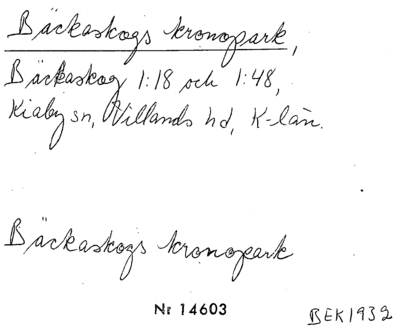 Bäckaskogs kronopark,
Bäckaskog 1:18 och 1:48,
Kiaby sn, Villands hd, K-län.
Bäckaskogs kronopark
Nr 14603
BEK1932